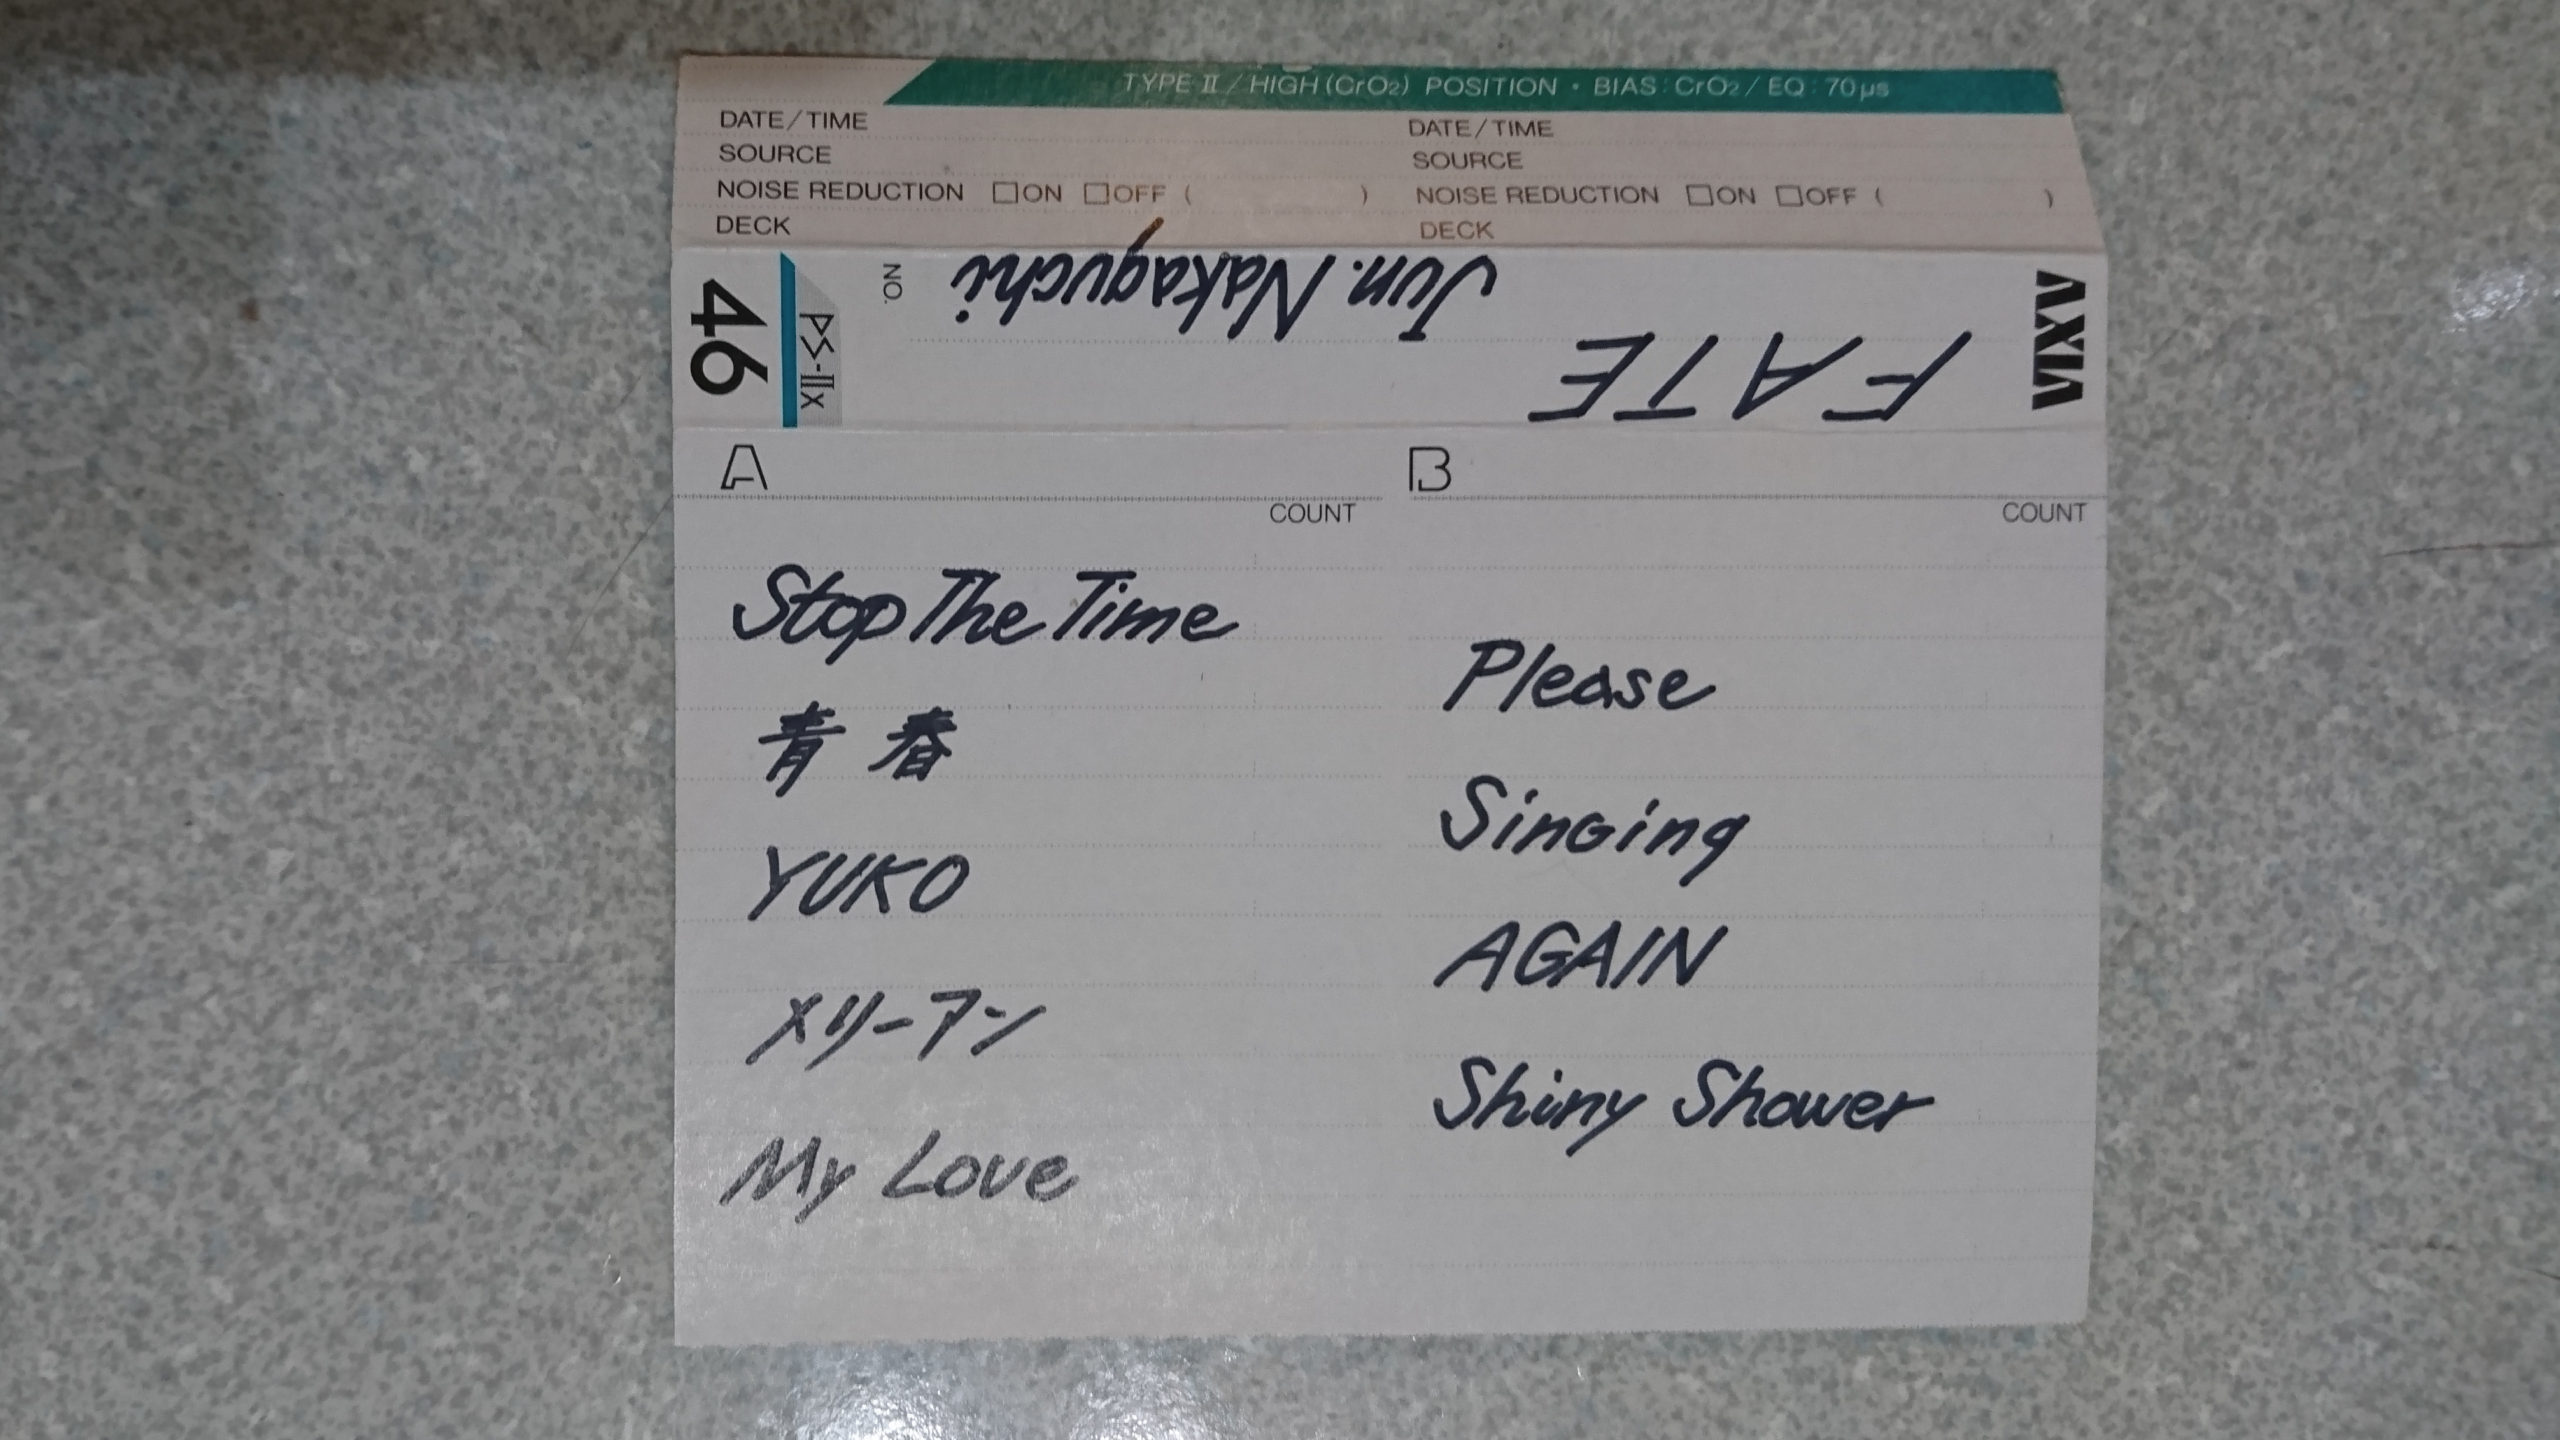 TYPE II / HIGH (CrO2) POSITION · BIAS : CrO2 / EQ : 70μs
DATE/TIME
SOURCE
NOISE REDUCTION □ON □OFF ( )
DECK
DATE/TIME
SOURCE
NOISE REDUCTION □ON □OFF ( )
DECK
AXIA
FATE
Jun. Nakaguchi
NO.
PS-IIx
46
A
COUNT
Stop The Time
青春
YUKO
メリーアン
My Love
B
COUNT
Please
Singing
AGAIN
Shiny Shower